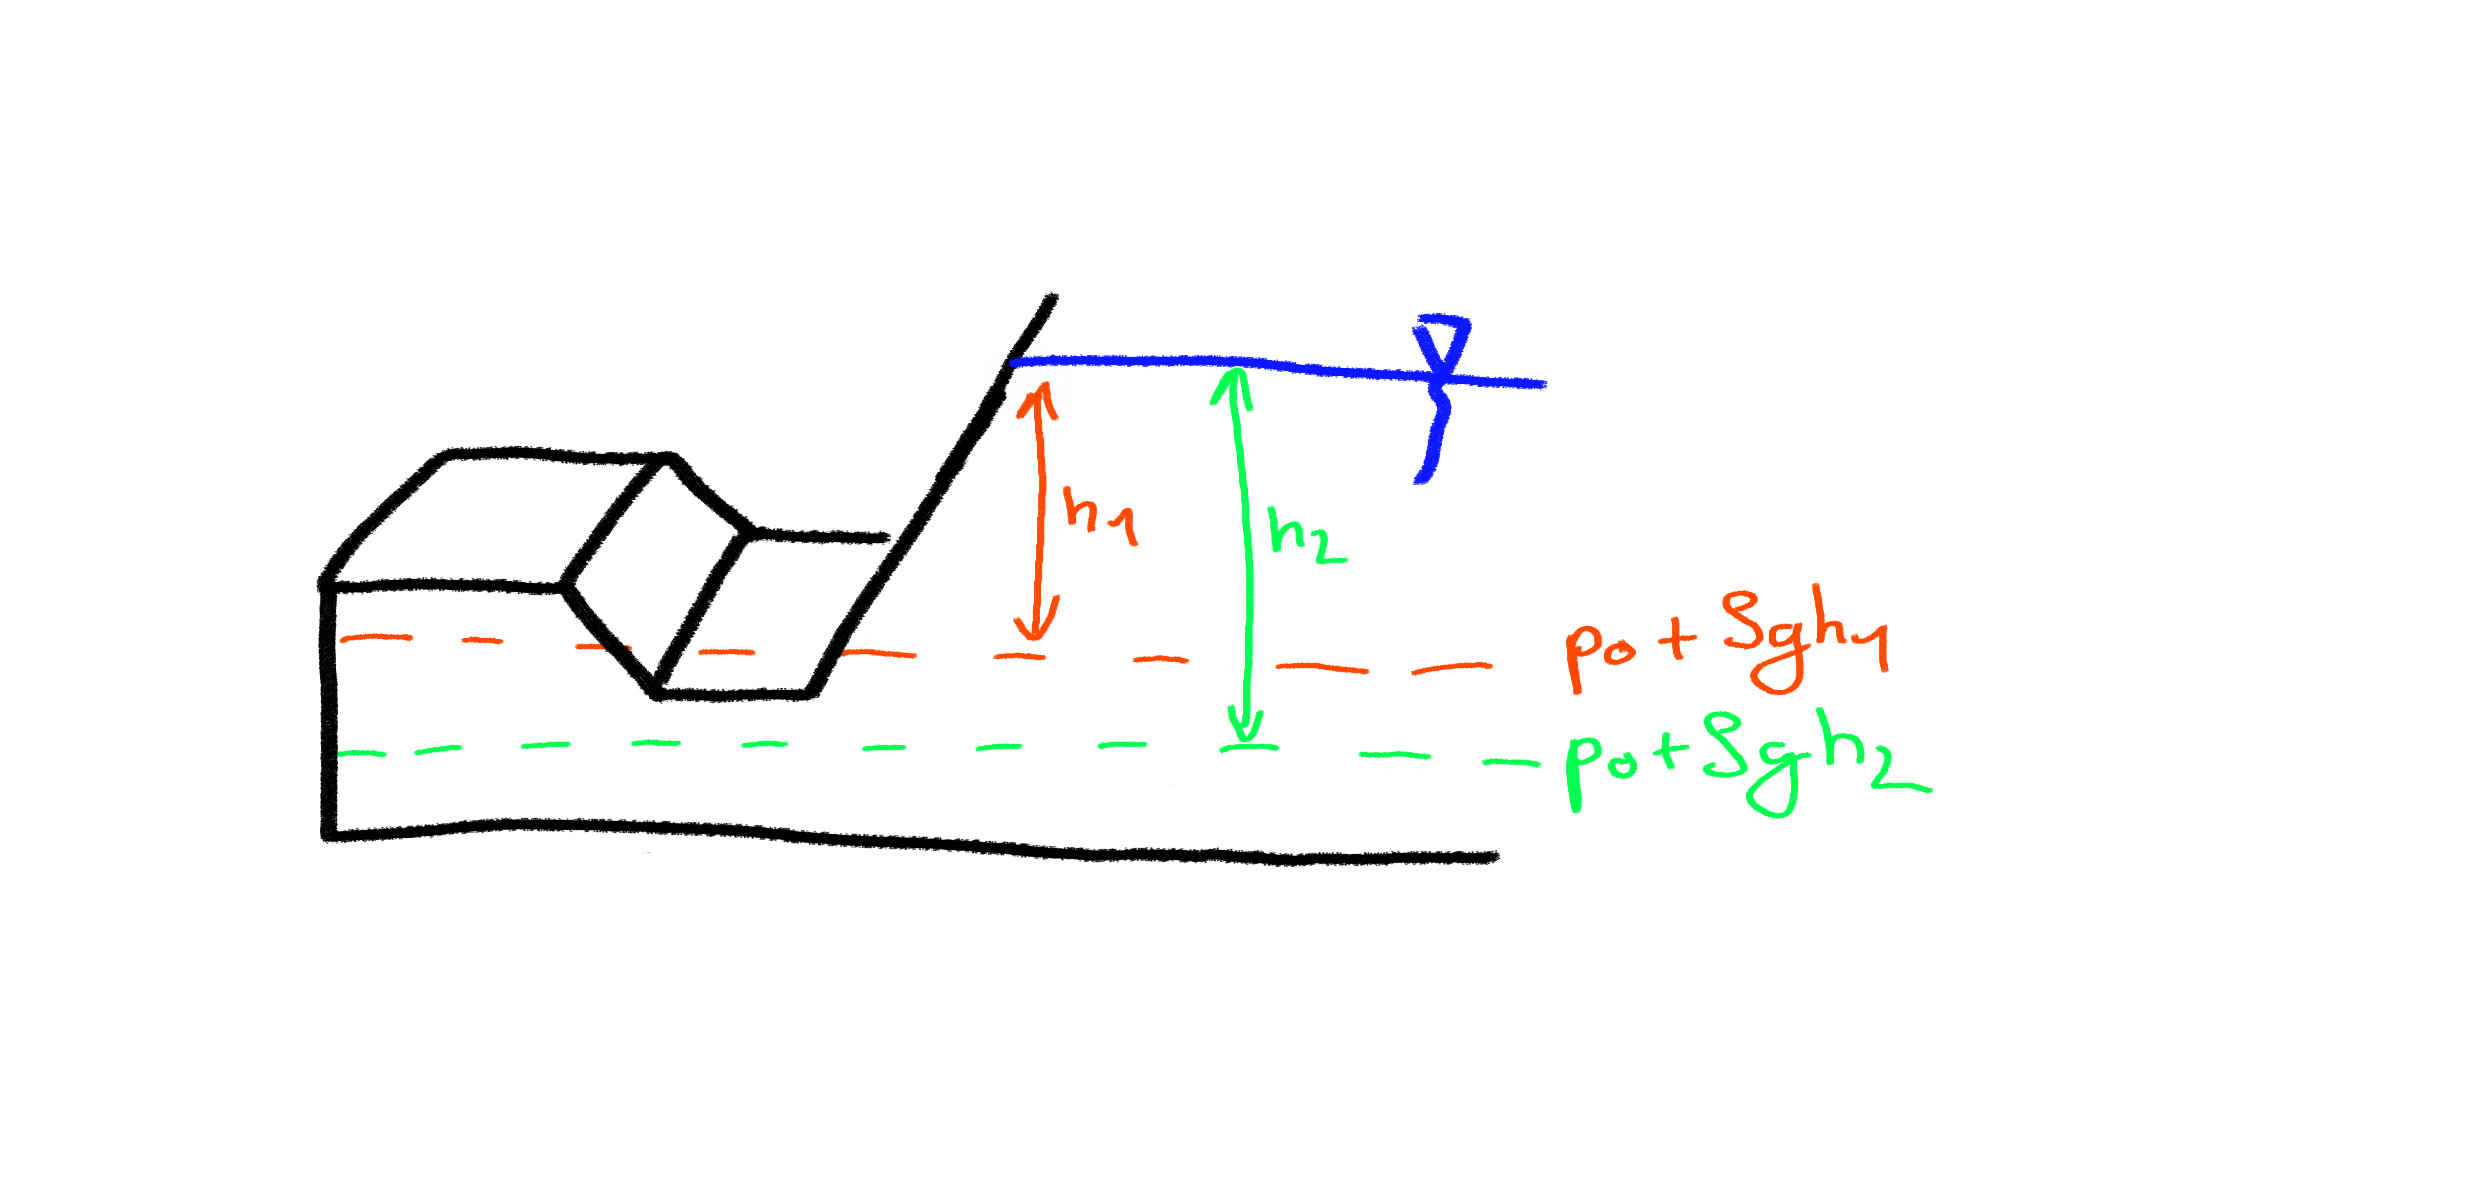 h1
h2
p0 + ρgh1
p0 + ρgh2